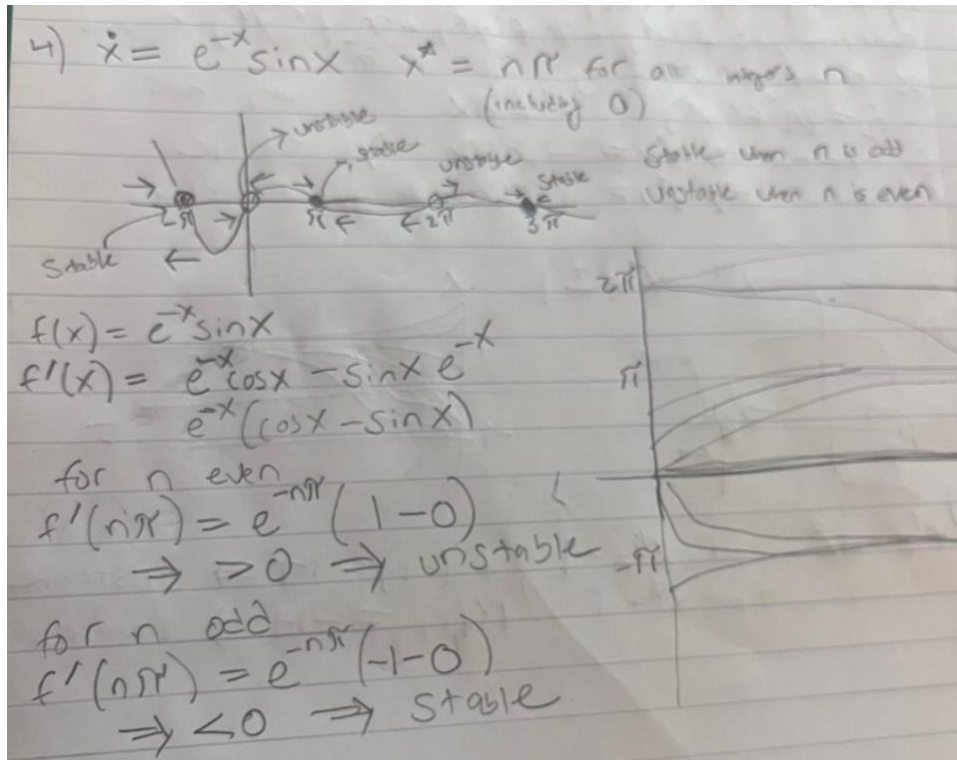 4) ẋ = e^-x sinx   x* = nπ for all integers n
(including 0)
unstable
stable
unstable
stable
Stable when n is odd
Unstable when n is even
-π
π
2π
3π
Stable
f(x) = e^-x sinx
f'(x) = e^-x cosx - sinx e^-x
e^-x (cosx - sinx)
for n even
f'(nπ) = e^-nπ (1-0)
⇒ >0 ⇒ unstable
for n odd
f'(nπ) = e^-nπ (-1-0)
⇒ <0 ⇒ stable
2π
π
-π